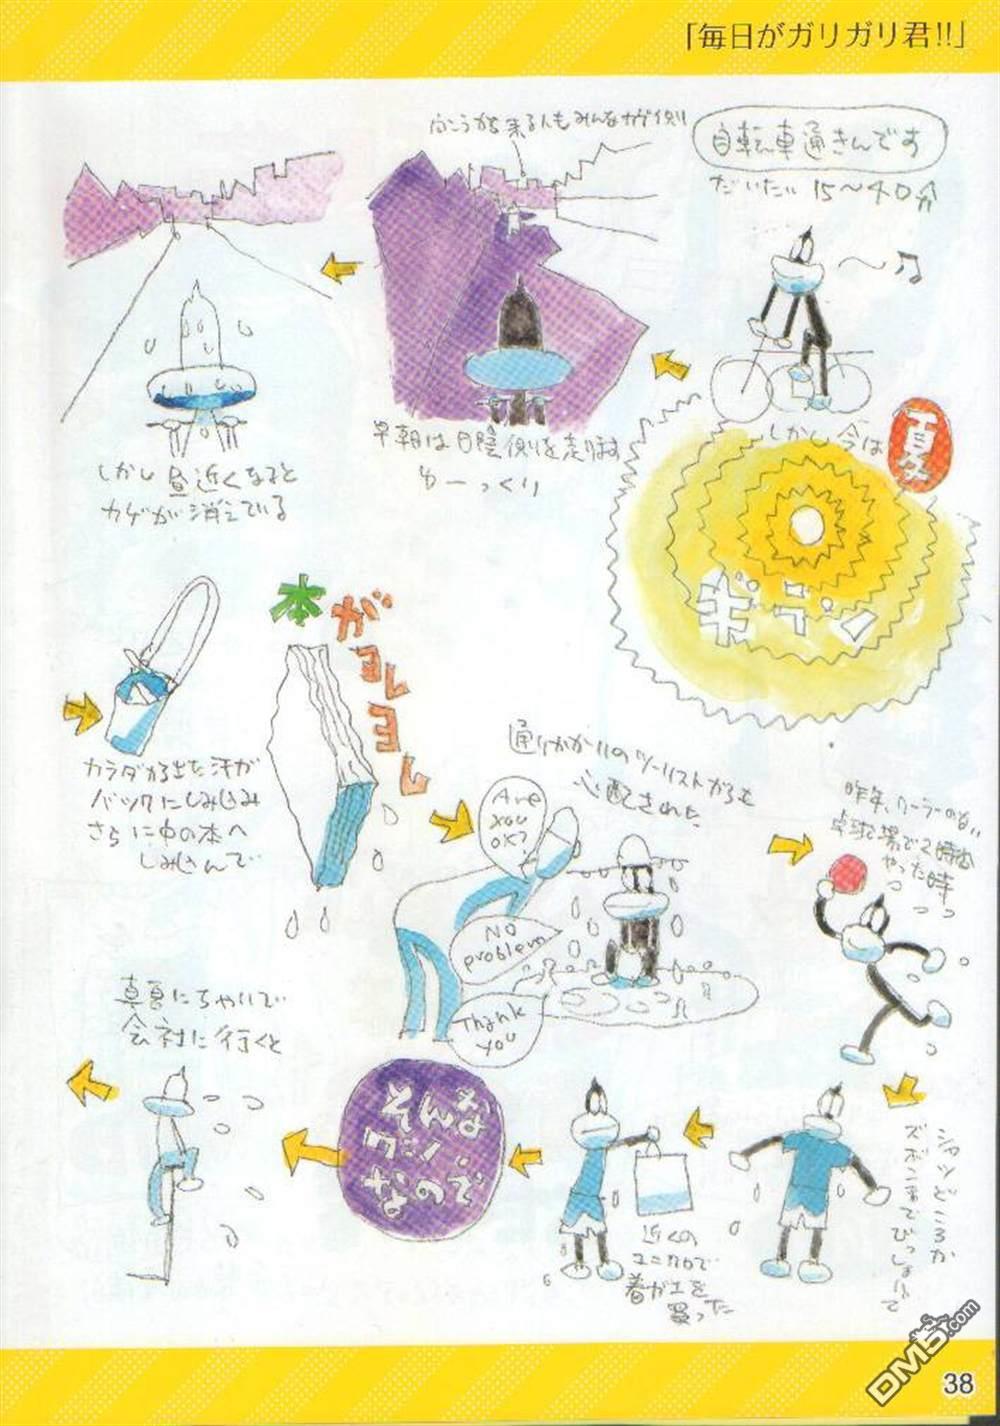 「毎日がガリガリ君!!」
自転車通きんです
だいたい 15〜40分
しかし今は
真夏
ギラン
向こうから来る人もみんなカゲ側
早朝は日陰側を走ります
ゆーっくり
しかし昼近くなると
カゲが消えている
カラダから出た汗が
バックにしみ込み
さらに中の本へ
しみ込んで
本がヨレヨレ
通りがかりのツーリストからも
心配された
Are
you
OK?
No
problem
Thank
you
昨年、クーラーのない
卓球場で2時間
やった時
シャツどころか
ズボンまでびっしょりで
近くの
ユニクロで
着がえを
買った
そんな
なので
真夏にチャリで
会社に行くと
38
DM5.com